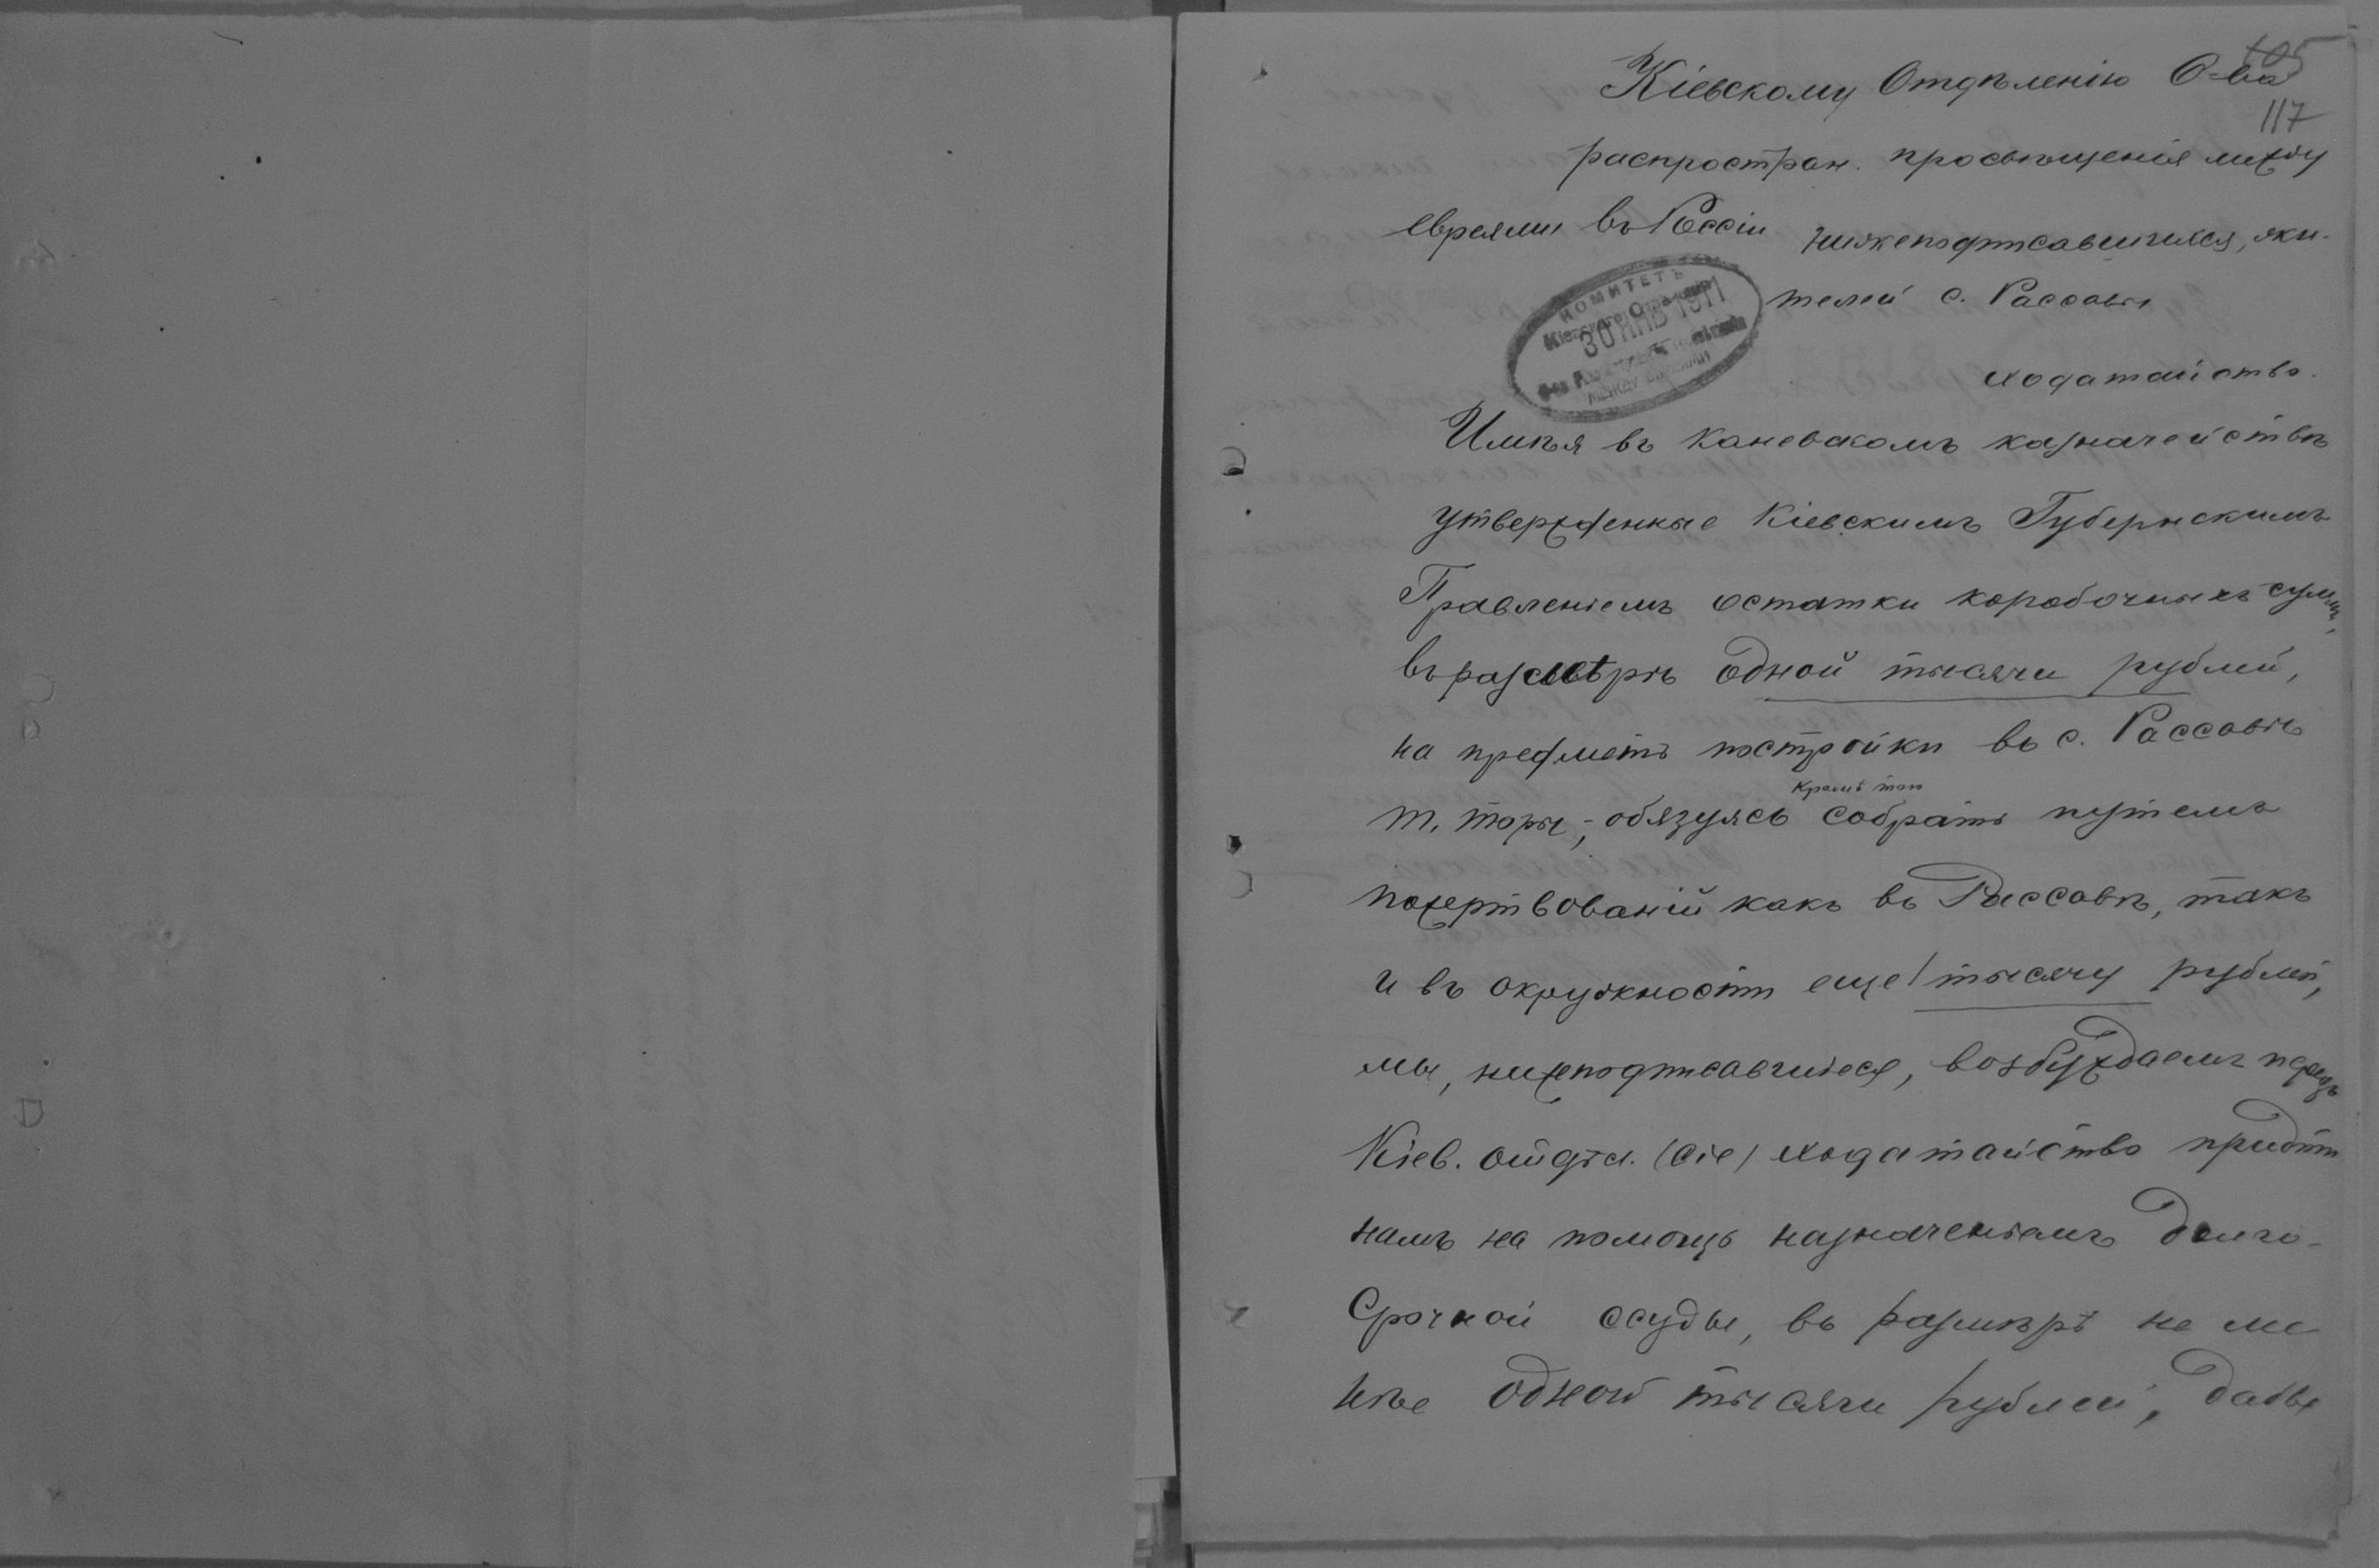 105
Кіевскому Отдѣленію О-ва
117
распростран. просвѣщенія между
евреями въ Россіи нижеподписавшихся, жи-
телей с. Россавы
КОМИТЕТЪ
Кіевскаго Отдѣленія
30 ЯНВ 1911
между евреями
ходатайство.
Имѣя въ Каневскомъ казначействѣ
утвержденные Кіевскимъ Губернскимъ
Правленіемъ остатки коробочныхъ суммъ,
въ размѣрѣ одной тысячи рублей,
на предметъ постройки въ с. Россавѣ
кромѣ того
т. торы, обязуясь собрать путемъ
пожертвованій какъ въ Россавѣ, такъ
и въ окружности еще тысячу рублей,
мы, нижеподписавшіеся, возбуждаемъ передъ
Кіев. отдѣл. (сіе) ходатайство придти
намъ на помощь назначеніемъ долго-
срочной ссуды, въ размѣрѣ не ме
нѣе одной тысячи рублей, дабы